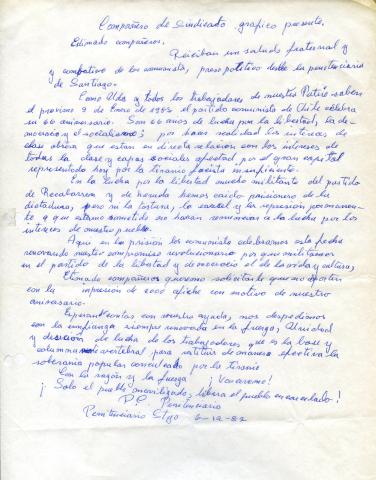 Compañero de Sindicato grafico presente.
Estimado compañeros.
Reciban un saludo fraternal y
y combativo de los comunista, preso politico desde la penitenciaria
de Santiago.
Como Uds y todos los trabajadores de nuestra Patria saben
el proximo 2 de Enero de 1983 el partido comunista de Chile celebra
su 60 aniversario. Son 60 años de lucha por la libertad, la de-
mocracia y el socialismo; por hacer realidad los interes de
clase obrera que estan en directa relacion con los intereses de
todas la clase y capas sociales afectad por el gran capital
representado hoy por la tirania facista
En la lucha por la libertad mucho militante del partido
de Recabarren y de Neruda hemos caido prisionero de la
dictadura, pero ni la tortura, la carcel y la represión permanente
a que estamos sometido no haran renunciar a la lucha por los
interes de nuestro pueblo.
Aqui en la prisión los comunista celebramos esta fecha
renovando nuestro compromiso revolucionario por que militamos
en el partido de la libertad y democracia el de la vida y cultura,
Estimado compañeros queremo solicitarle que nos aporten
con la impresion de 2000 afiche con motivo de nuestro
anivesario.
Esperando contas con vuestra ayuda, nos despedimos
con la confianza siempre renovada en la fuerza, Unidad
y decisión de lucha de los trabajadores que es la base y
columna vertebral para restituir de manera efectiva la
soberania popular conculcado por la tirania
Con la razón y la fuerza ¡ Venceremo!
¡ Solo el pueblo movilizado, libera el pueblo encarcelado!
P.C. Penitenciaria
Penitenciaria Stgo 6-12-82